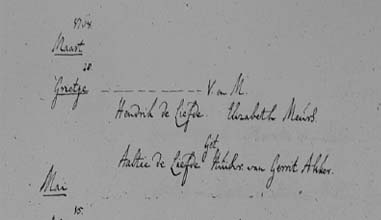 Maart
28.
Grietje ——————— V. en M.
Hendrik de Liefde. Elizabeth Meurs.
Get.
Aaltie de Liefde Huisvr. van Gerrit Akker.
Mai
15.